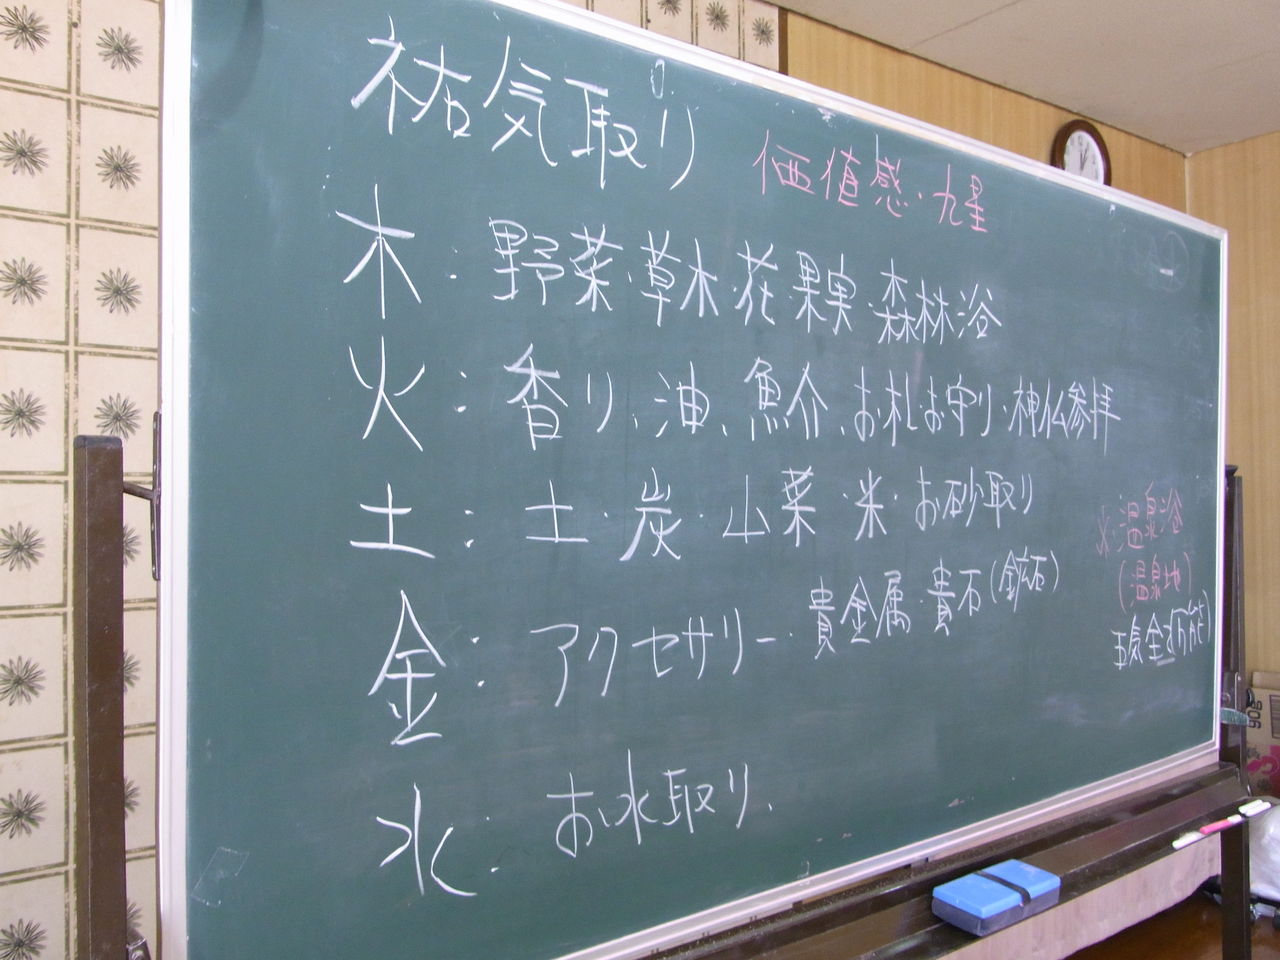 祐気取り
価値感・九星
木：野菜・草木・花・果実・森林浴
火：香り、油、魚介、お札お守り・神仏参拝
土：土・炭・山菜・米・お砂取り
金：アクセサリー・貴金属・貴石(鉱石)
水：お水取り、
※温泉浴
(温泉地)
五気全部